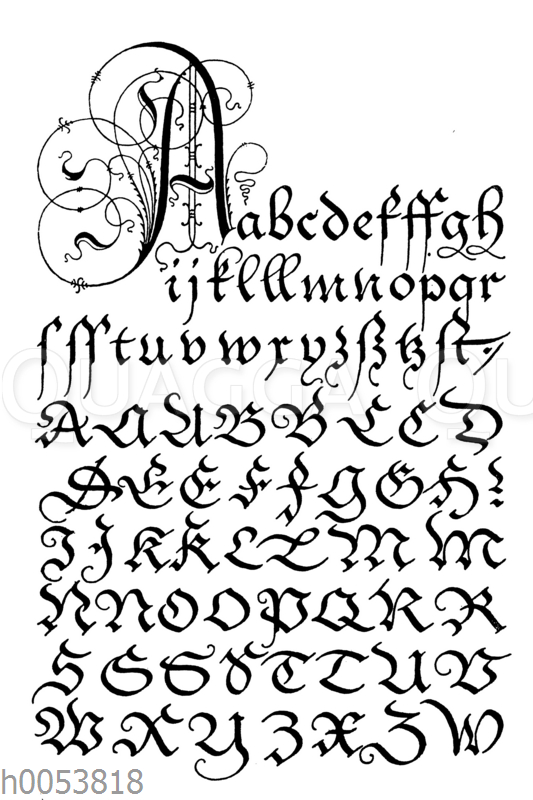 A abcdefffgh
ijklllmnopqr
ſſſtuvwxyzßtzſt
AAABBCCD
DEEFFGGH!
IJKKLLMM
NNOOPQRR
SSSSTTUV
WXYZXZW
QUAGGA QU
h0053818